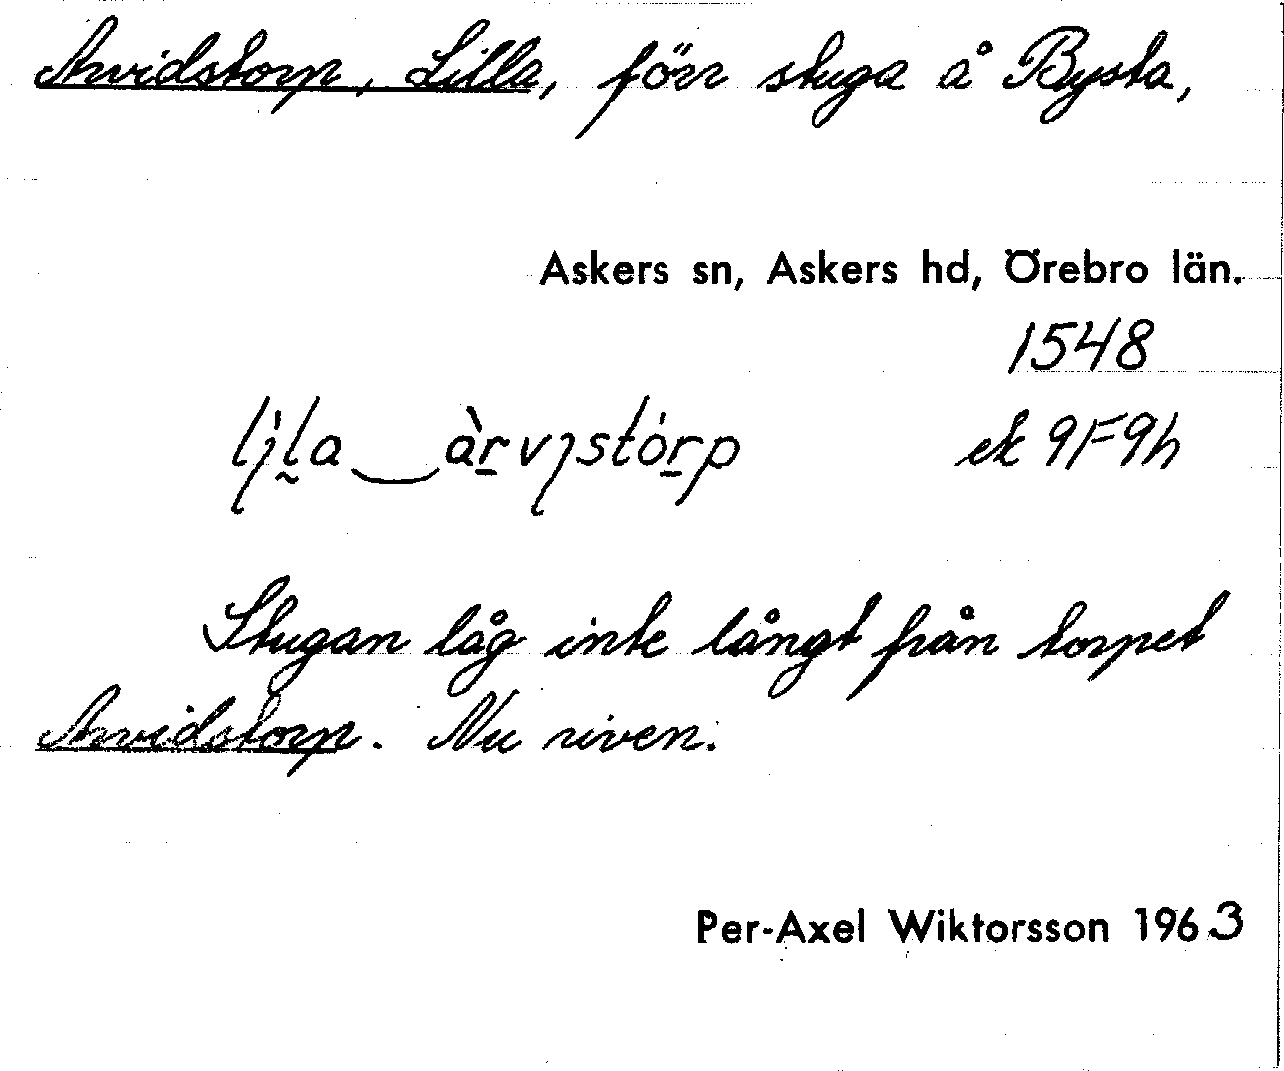 Arvidstorp, Lilla, förr stuga å Bysta,
Askers sn, Askers hd, Örebro län.
1548
lịla‿àrvịstórp ek 9F9h
Stugan låg inte långt från torpet
Arvidstorp. Nu riven.
Per-Axel Wiktorsson 1963